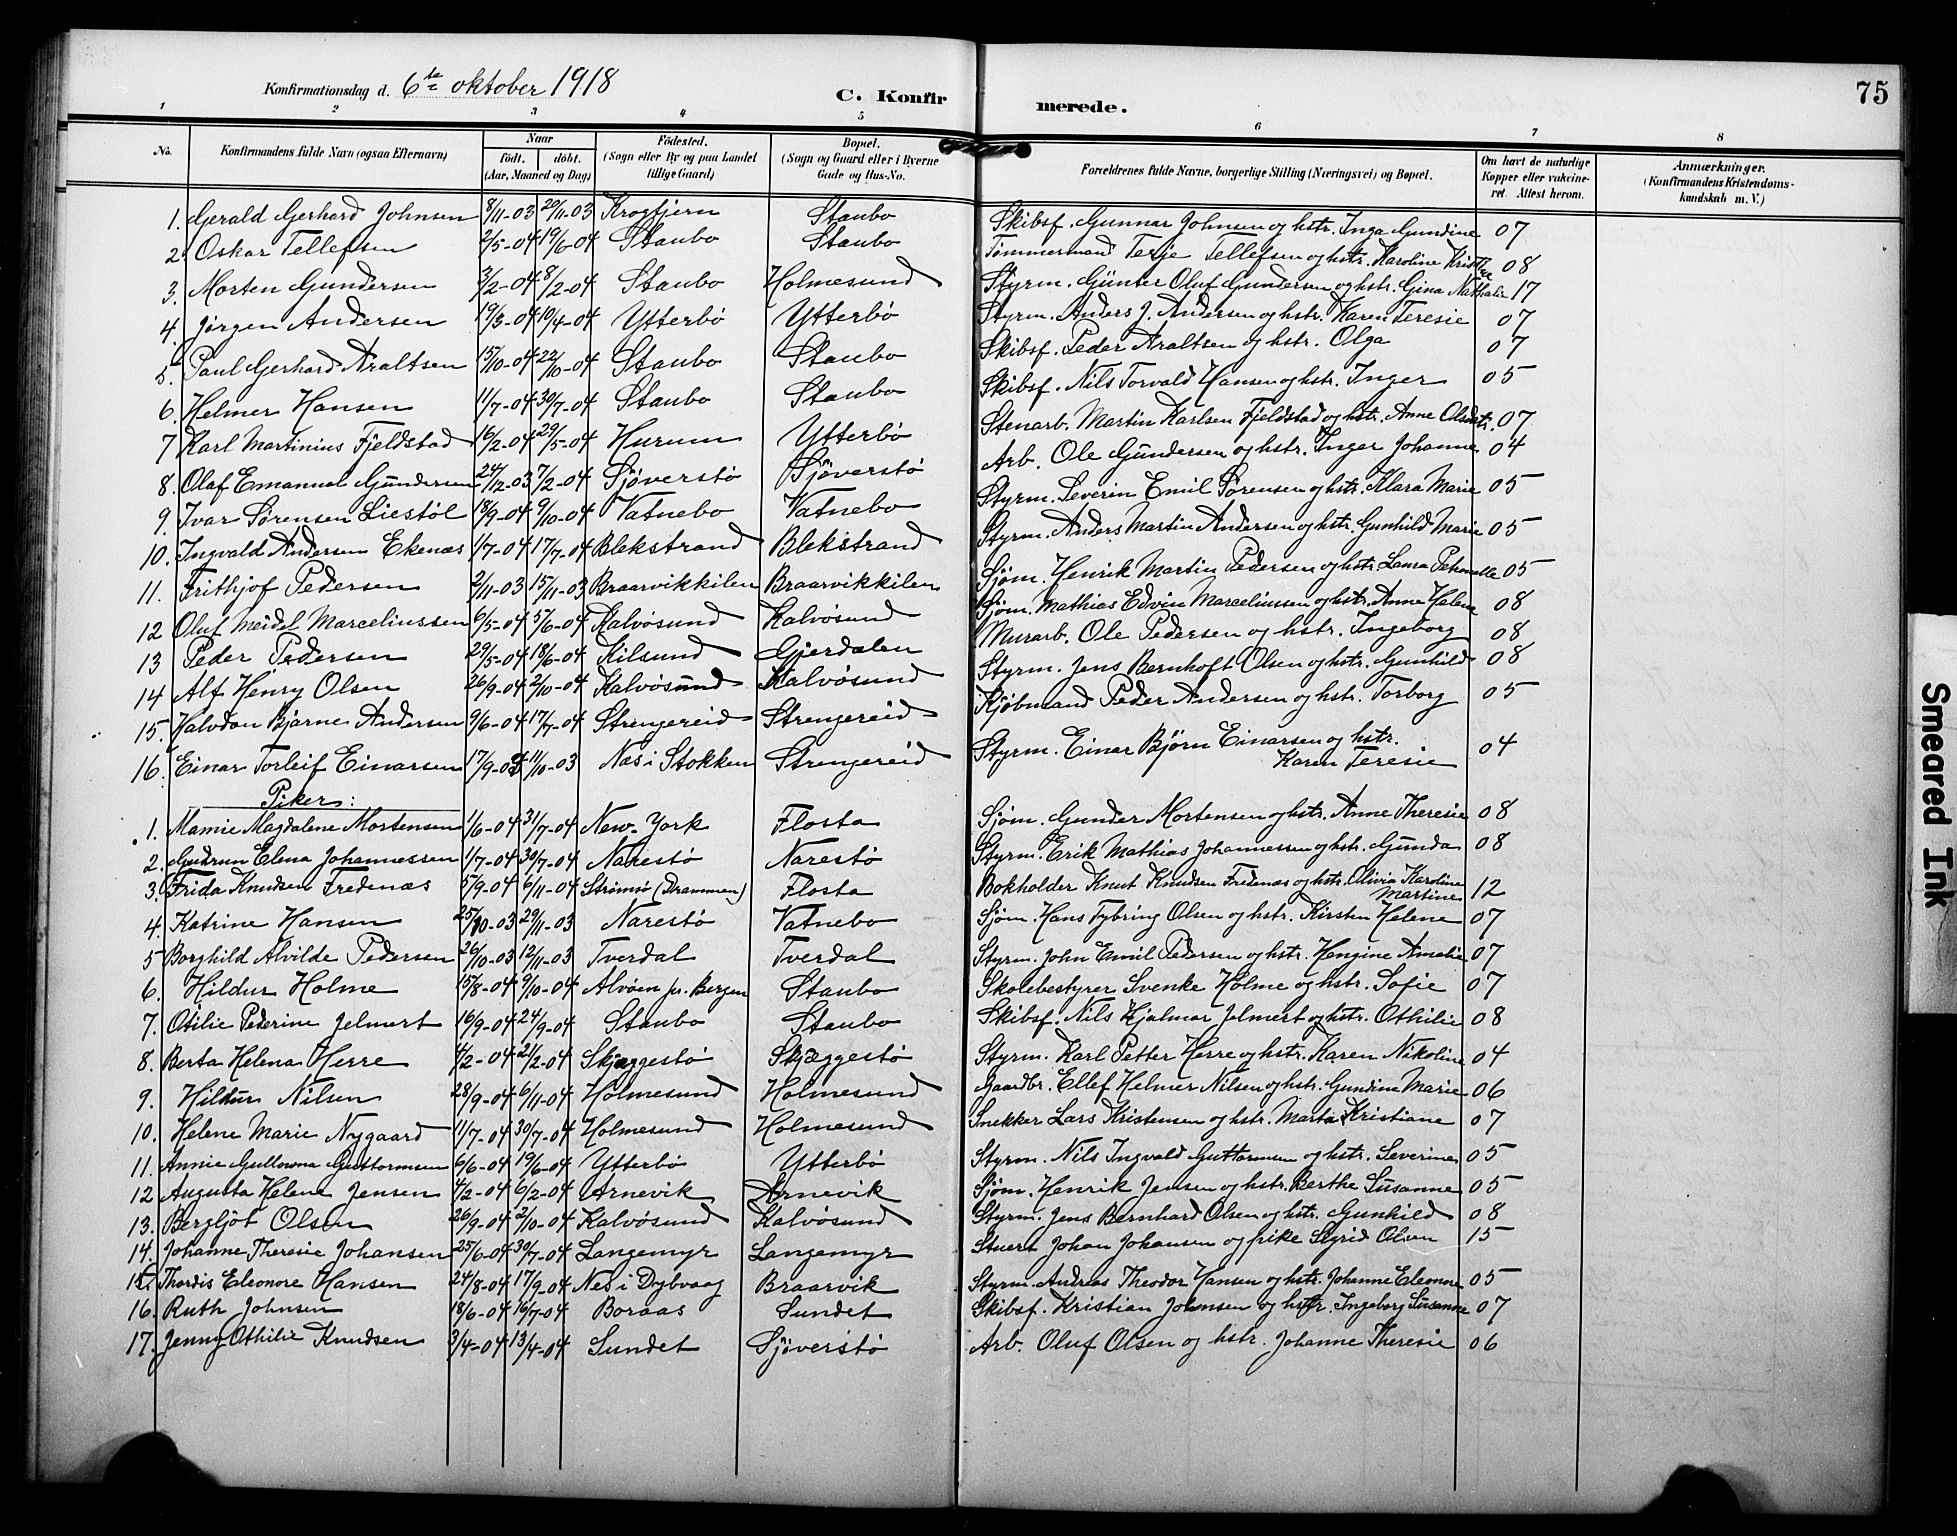 Konfirmationsdag d. 6te oktober 1918
C. Konfirmerede.
75
1 2 3 4 5 6 7 8
No. Konfirmandens fulde Navn (ogsaa Efternavn) Naar födt. döbt. (Aar, Maaned og Dag) Födested. (Sogn eller By og paa Landet tillige Gaard) Bopæl. (Sogn og Gaard eller i Byerne Gade og Hus-No. Forældrenes fulde Navne, borgerlige Stilling (Næringsvei) og Bopæl. Om havt de naturlige Kopper eller vakcineret. Attest herom. Anmærkninger. (Konfirmandens Kristendomskundskab m. V.)
1. Gerald Gerhard Johnsen 8/11-03 20/11-03 Krogtjern Staubo Skibsf. Gunnar Johnsen og hstr. Inga Gundine 07
2 Oskar Tellefsen 2/5-04 19/6-04 Staubo Staubo Tømmermand Terje Tellefsen og hstr. Karoline 08
3. Morten Gundersen 3/2-04 8/2-04 Staubo Holmesund Styrm. Günter Oluf Gundersen og hstr. Gina Nathalie 17
4. Jørgen Andersen 19/3-04 10/4-04 Ytterbø Ytterbø Styrm. Anders J. Andersen og hstr. Karen Teresie 07
5. Paul Gerhard Araltsen 15/10-04 22/10-04 Staubo Staubo Skibsf. Peder Araltsen og hstr. Olga 07
6. Helmer Hansen 11/7-04 30/7-04 Staubo Staubo Skibsf. Nils Torvald Hansen og hstr. Inger 05
7 Karl Martinius Fjeldstad 16/2-04 29/5-04 Hurum Ytterbø Stenarb. Martin Karlsen Fjeldstad og hstr. Anne Olsdtr. 07
8. Olaf Emanuel Gundersen 24/12-03 7/2-04 Sjöverstø Sjöverstø Arb. Ole Gundersen og hstr. Inger Johanne 04
9. Ivar Sørensen Liestøl 18/9-04 9/10-04 Vatnebo Vatnebo Styrm. Severin Emil Sørensen og hstr. Klara Marie 05
10. Ingvald Andersen Ekenæs 1/7-04 17/7-04 Blekstrand Blekstrand Styrm. Anders Martin Andersen og hstr. Gunhild Marie 05
11. Frithjof Pedersen 2/11-03 15/11-03 Braarvikkilen Braarvikkilen Sjøm. Henrik Martin Pedersen og hstr. Laura Petronelle 05
12 Oluf Meidel Marceliussen 6/5-04 5/6-04 Kalvøsund Kalvøsund Sjøm. Mathias Edvin Marceliussen og hstr. Anne Helene 08
13 Peder Pedersen 29/5-04 18/6-04 Kilsund Gjerdalen Murarb. Ole Pedersen og hstr. Ingeborg 08
14 Alf Henry Olsen 26/9-04 2/10-04 Kalvøsund Kalvøsund Styrm. Jens Bernhoft Olsen og hstr. Gunhild 08
15. Halvdan Bjarne Andersen 9/6-04 17/7-04 Strengereid Strengereid Kjøbmand Peder Andersen og hstr. Torborg 05
16. Einar Torleif Einarsen 17/9-03 11/10-03 Næs i Stokken Strengereid Styrm. Einar Bjørn Einarsen og hstr. Karen Teresie 04
Piker:
1. Mamie Magdalene Mortensen 1/6-04 31/7-04 New-York Flosta Sjøm. Gunder Mortensen og hstr. Anne Theresie 08
2. Gudrun Elena Johannessen 1/7-04 30/7-04 Narestø Narestø Styrm. Erik Mathias Johannessen og hstr. Gunda 08
3. Frida Knudsen Fredenæs 5/9-04 6/11-04 Strømsø (Drammen) Flosta Bokholder Knut Knudsen Fredenæs og hstr. Olivia Karoline Martine 12
4. Katrine Hansen 25/10-03 29/11-03 Narestø Vatnebo Sjøm. Hans Tybring Olsen og hstr. Kirsten Helene 07
5 Borghild Alvilde Pedersen 26/10-03 12/11-03 Tverdal Tverdal Styrm. John Emil Pedersen og hstr. Hengine Amalie 07
6. Hildur Holme 15/8-04 9/10-04 Alvøen pr. Bergen Staubo Skolebestyrer Svenke Holme og hstr. Sofie 07
7. Otilie Pederine Jelmert 16/9-04 24/9-04 Staubo Staubo Skibsf. Nils Hjalmar Jelmert og hstr. Othilie 08
8. Berta Helena Herre 4/2-04 21/2-04 Skjæggestø Skjæggestø Styrm. Karl Petter Herre og hstr. Karen Nikoline 04
9. Hildur Nilsen 28/9-04 6/11-04 Holmesund Holmesund Gaardbr. Ellef Helmer Nilsen og hstr. Gundine Marie 06
10. Helene Marie Nygaard 11/7-04 30/7-04 Holmesund Holmesund Snekker Lars Kristensen og hstr. Marta Kristiane 07
11. Annie Gullowna Guttormsen 6/6-04 19/6-04 Ytterbø Ytterbø Styrm. Nils Ingvald Guttormsen og hstr. Severine 05
12 Augusta Helene Jensen 4/2-04 6/2-04 Arnevik Arnevik Sjøm. Henrik Jensen og hstr. Berthe Susanne 05
13. Bergljot Olsen 26/9-04 2/10-04 Kalvøsund Kalvøsund Styrm. Jens Bernhard Olsen og hstr. Gunhild 08
14. Johanne Theresie Johansen 25/6-04 30/7-04 Langemyr Langemyr Stuert Johan Johansen og pike Sigrid Olsen 15
15. Thordis Eleonore Hansen 24/8-04 17/9-04 Nes i Dybvaag Braarvik Styrm. Andreas Theodor Hansen og hstr. Johanne Eleonore 05
16. Ruth Johnsen 18/6-04 16/7-04 Boraas Sundet Skibsf. Kristian Johnsen og hstr. Ingeborg Susanne 07
17. Jenny Othilie Knudsen 3/4-04 13/4-04 Sundet Sjöverstø Arb. Oluf Olsen og hstr. Johanne Theresie 06
Smeared Ink